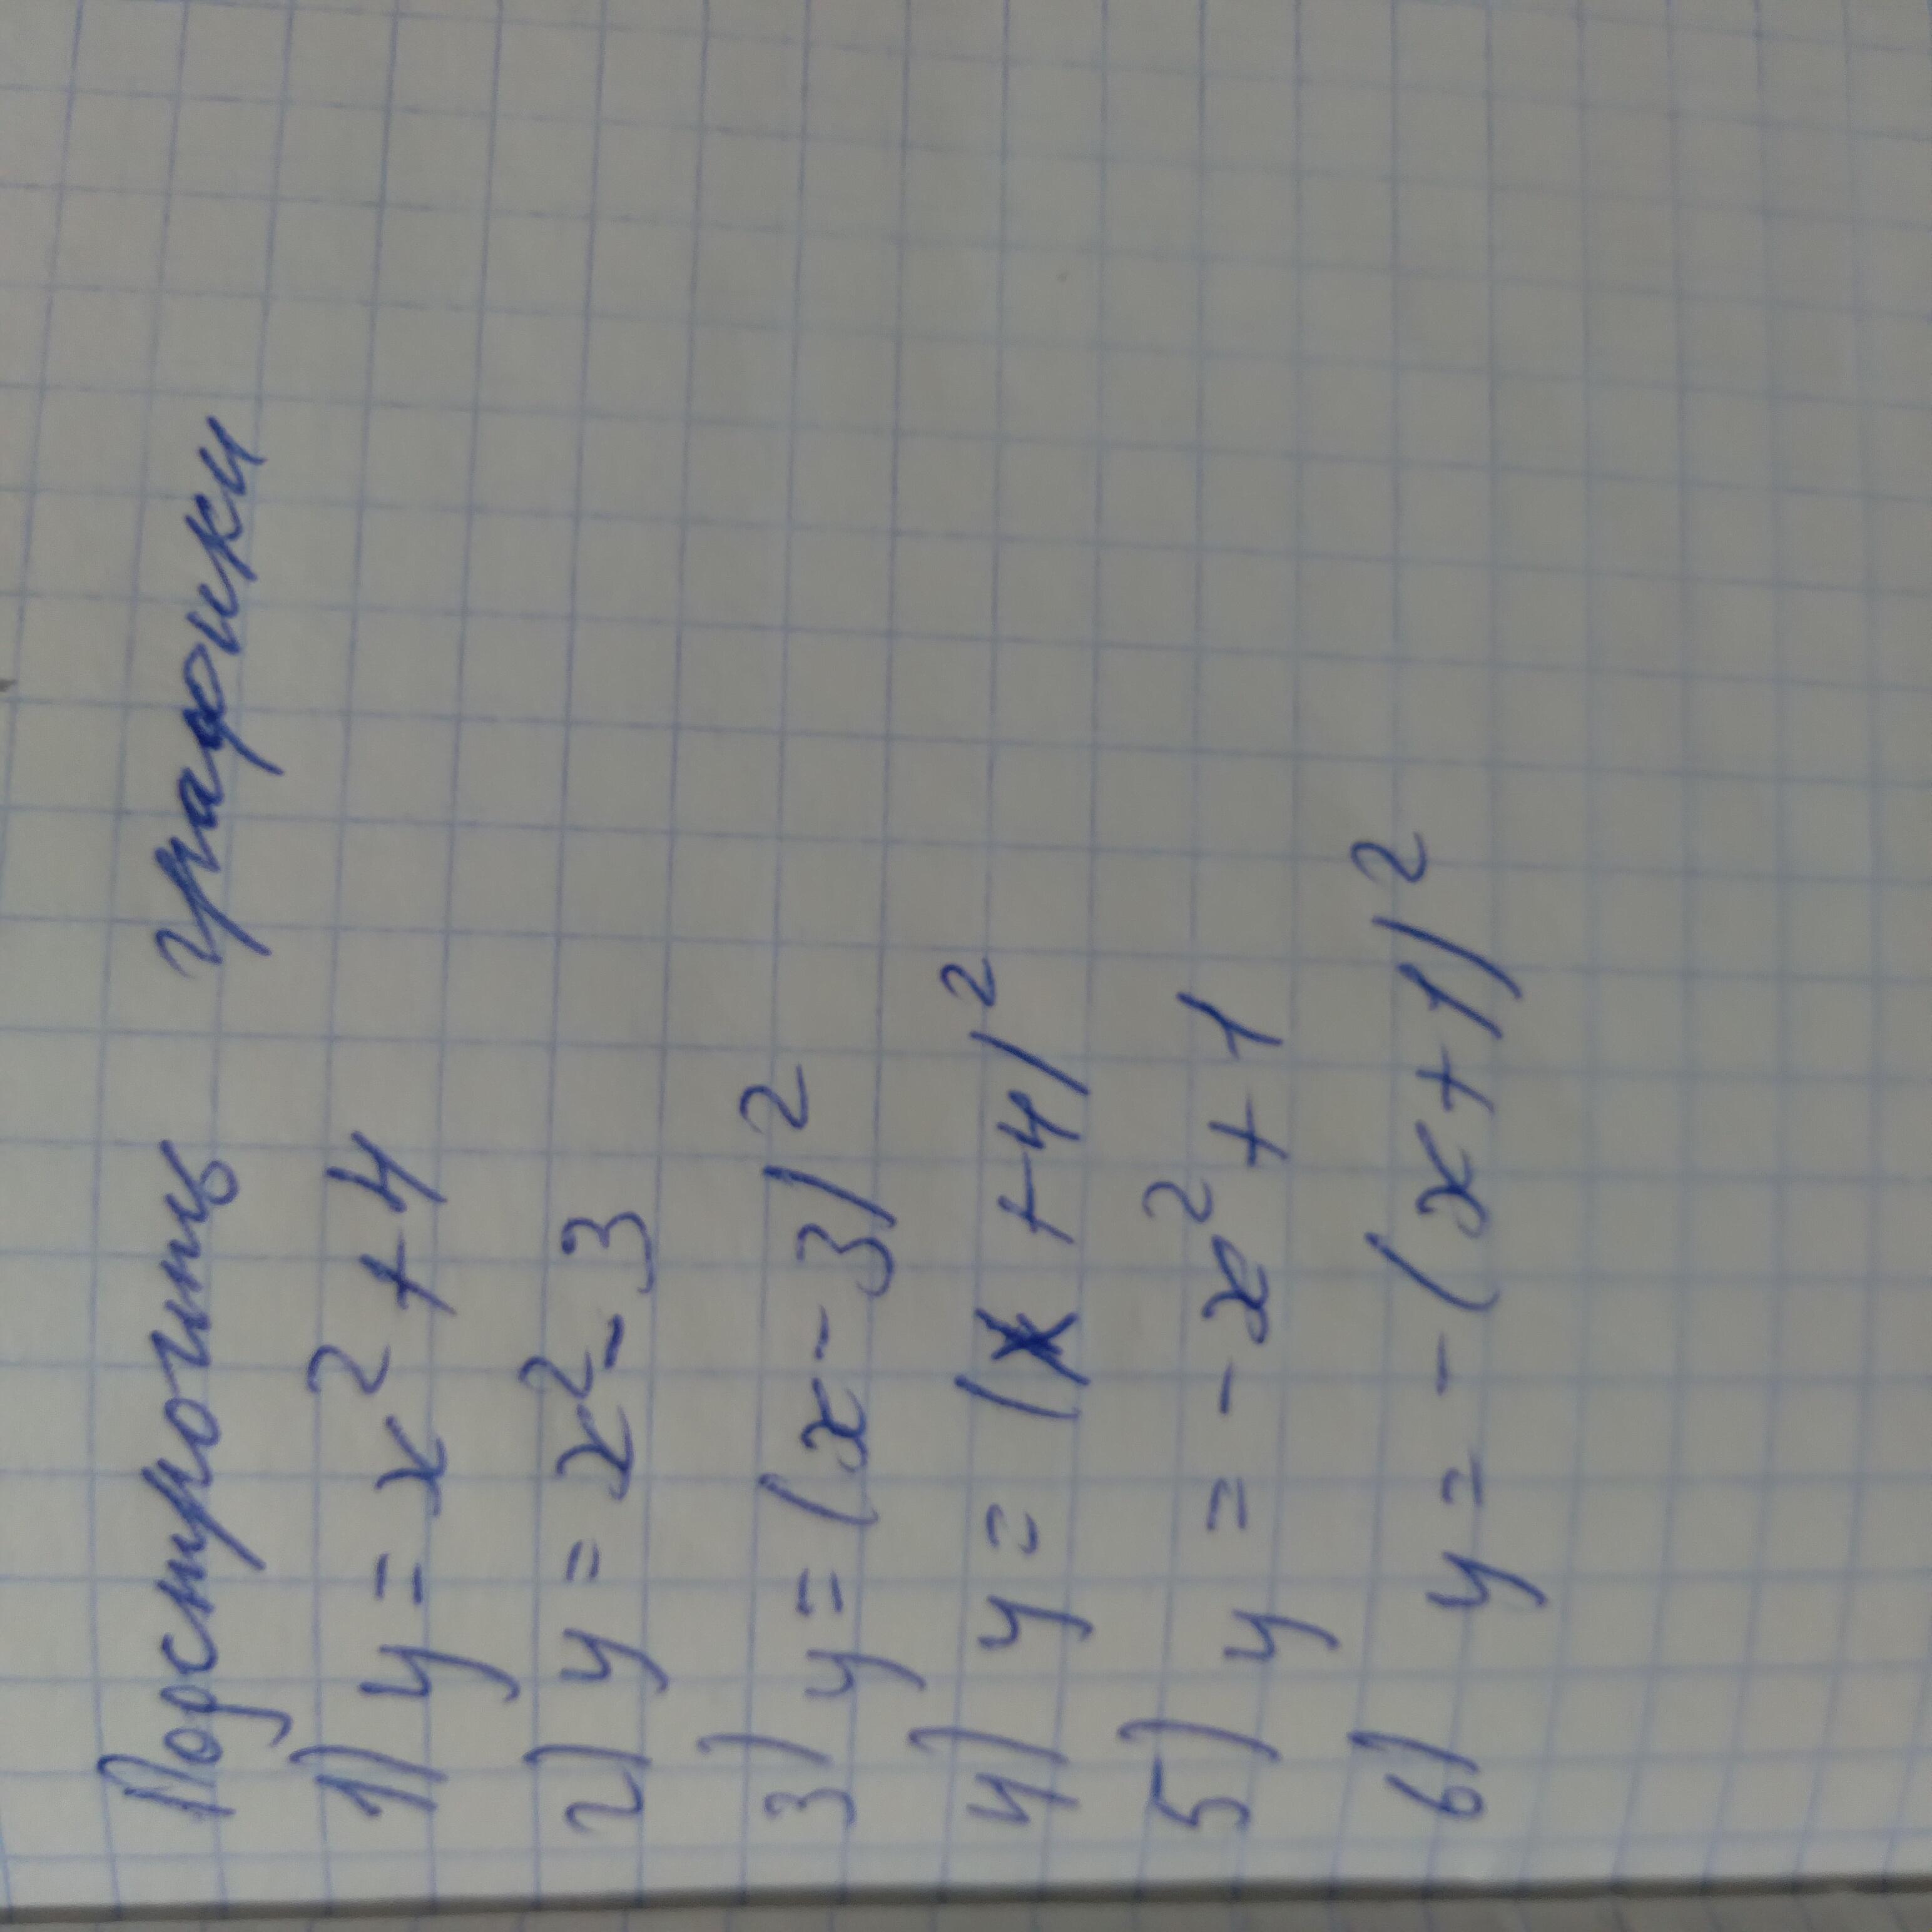 Построить графики
1) y = x² + 4
2) y = x² - 3
3) y = (x - 3)²
4) y = (x + 4)²
5) y = - x² + 1
6) y = - (x + 1)²